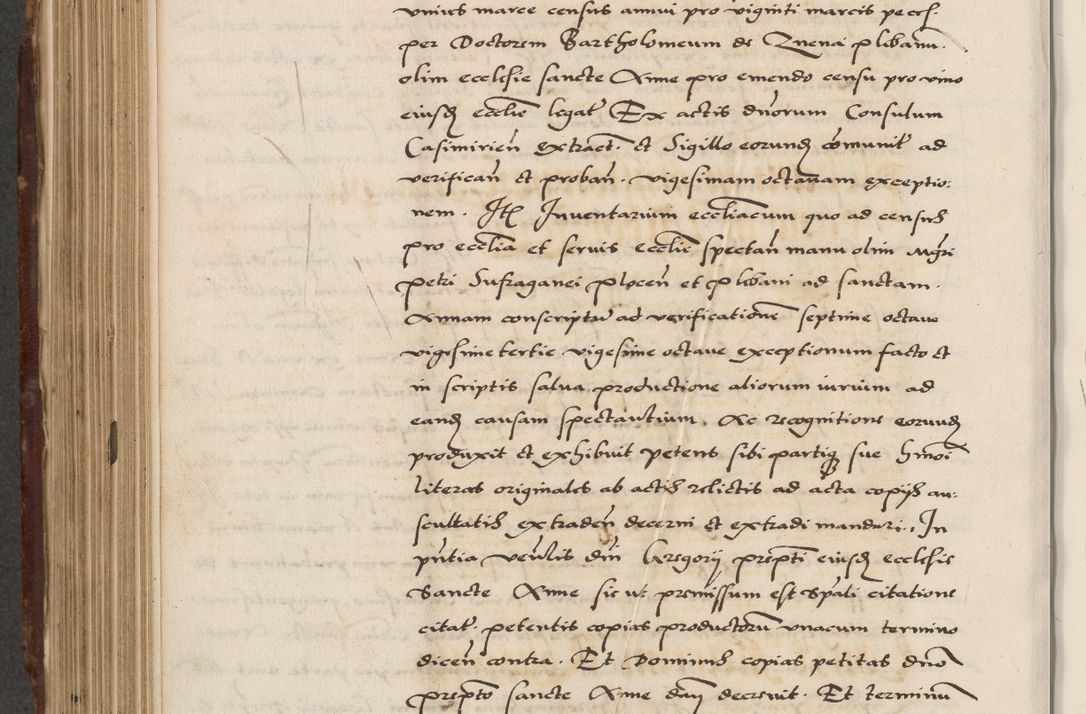 vnius marce census annui pro viginti marcis pecch.
per Doctorem Bartholomeum de Znena plebanu.
olim ecclesie sancte Anne pro emendo censu pro vino
eiusd ecclie legat Ex actis dnorum Consulum
Casimirien extract. et Sigillo eorund comunit ad
verifican et proban. vigesimam octauam exceptio:
nem. Ite Inuentarium eccliacum quo ad census
pro ecclia et seruis ecclie spectan manu olim Mgri
petri Sufraganei plocen et plebani ad sanctam
Annam conscriptu ad verificatione septime octaue
vigesime tertie vigesime octaue exceptionum facto et
in scriptis salua productione aliorum iurium ad
eand causam spectantium. Ac recognitione eorund
produxit et exhibuit petens sibi partiq sue hmoi
literas originales ab actis relictis ad acta copijs au:
scultatis extraden decerni et extradi mandari. In
pntia venlis dni Gregorij prepti eiusd ecclesie
Sancte Anne sic ut premissum est Spali citatione
citat. petentis copias productoru vnacum termino
dicen contra. Et Dominus copias petitas dno
prepto sancte Anne dari decreuit. Et terminu